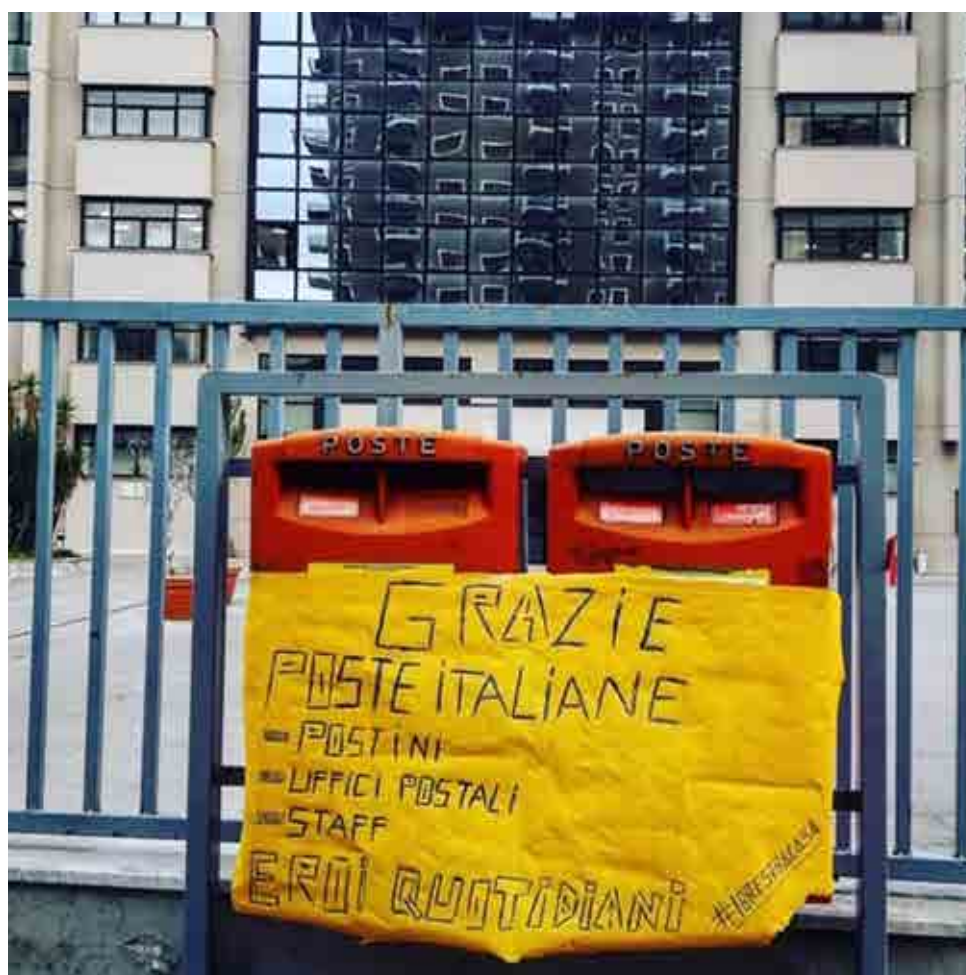 POSTE
POSTE
GRAZiE
POSTE iTALiANE
- POSTINI
- UFFICI POSTALi
- STAFF
EROi QUOTiDiANi